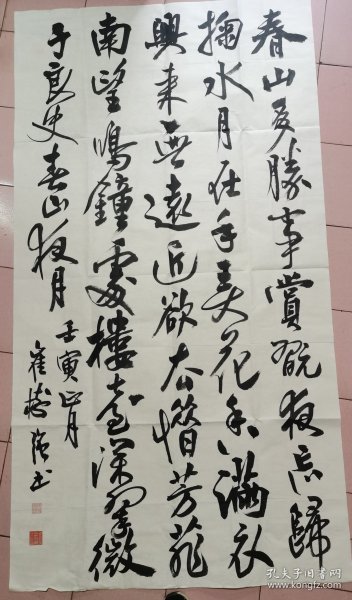 春山多勝事賞翫夜忘歸
掬水月在手弄花香滿衣
興來無遠近欲去惜芳菲
南望鳴鐘處樓臺深翠微
于良史春山夜月
壬寅正月
崔樹強書
孔夫子旧书网